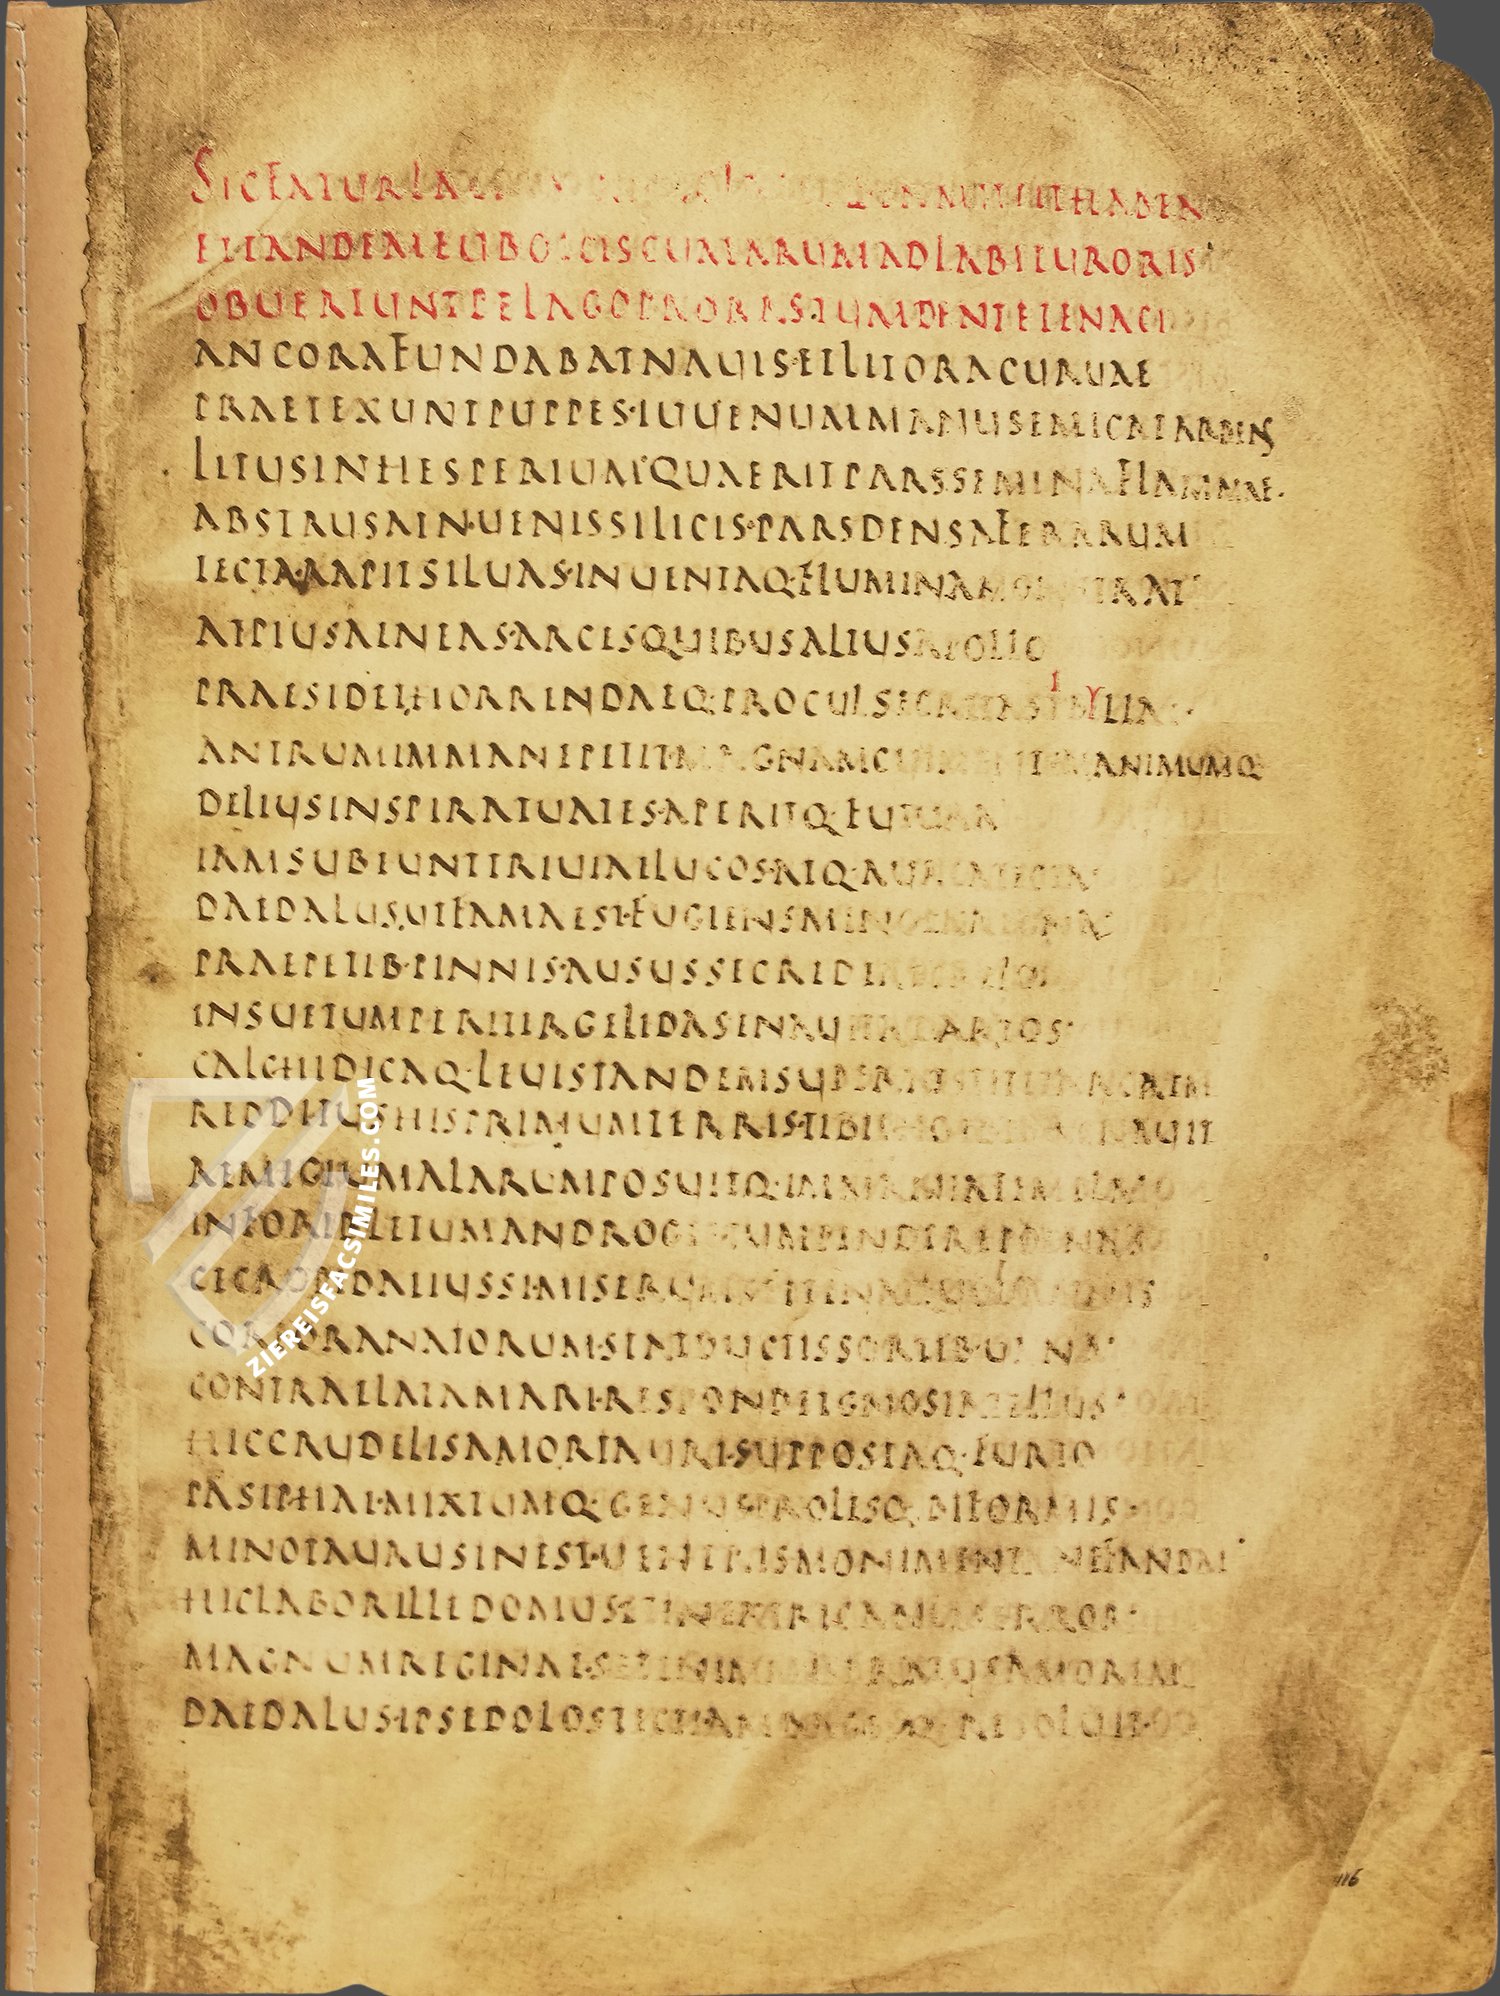 SICFATURLAC HABEN
ETTANDEMEUBOICISCUMARUMADLABITURORIS
OBUERTUNTPELAGOPRORAS·TUMDENTETENACI
ANCORAFUNDABATNAUIS·ETLITORACURUAE
PRAETEXUNTPUPPES·IUUENUMMANUSEMICATARDENS
LITUSINHESPERIUM·QUAERITPARSSEMINAFLAMMAE·
ABSTRUSAIN·UENISSILICIS·PARSDENSAFERARUM
TECTA·RAPITSILUAS·INUENTAQ·FLUMINAMONSTRAT
ATPIUSAENEAS·ARCESQUIBUSALTUSAPOLLO
PRAESIDET,HORRENDAEQ·PROCULSECRETASIBYLLAE
ANTRUMIMMANEPETIT·MAGNAMCUIMENTEMANIMUMQ
DELIUSINSPIRATUATES·APERITQ·FUTURA
IAMSUBEUNTTRIUIAELUCOS·ATQ·AUREATECTA
DAEDALUS,UTFAMAEST·FUGIENSMINOIAREGNA
PRAEPETIB·PINNIS·AUSUSSECREDERE
INSUETUMPERITERGELIDASENAUITADARTOS·
CALCHIDICAQ·LEUISTANDEMSUPERASTITITARCAEM
REDDITUSHISPRIMUMTERRIS·TIBI SACRAUIT
REMIGIUMALARUMPOSUITQ·IMMANIATEMPLA
INFORIBLETUMANDROGEI·CUMPENDEREPOENAS
CECROPIDAEIUSSI·MISERUM·SEPTENA
CORPORANATORUM·STATDUCTISSORTIB·URNA·
CONTRAELATAMARI·RESPONDETGNOSIATELLUS·
HICCRUDELISAMORTAURI·SUPPOSTAQ·FURTO
PASIPHAE·MIXTUMQ·GENUS·PROLESQ·BIFORMIS·
MINOTAURUSINEST·UENERISMONIMENTANEFANDAE·
HICLABORILLEDOMUS·ETINEXTRICABILISERROR·
MAGNUMREGINAE·SETENIM AMOREM
DAEDALUS·IPSEDOLOSTECTI·AMBAGESQ·RESOLUIT·
116
ZIEREISFACSIMILES.COM